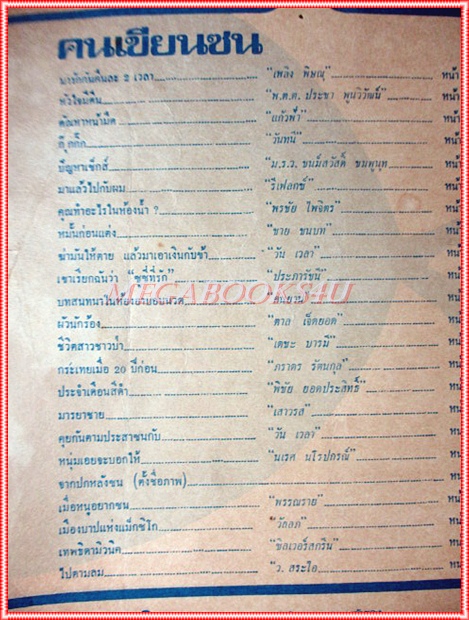 คนเขียนซน
มารักกันคืนละ 2 เวลา "เพลิง พิษณุ" หน้า
หัวใจมีตีน "พ.ต.ต. ประชา พูนวิวัฒน์" หน้า
ตัณหาหน้ามืด "แก้วฟ้า" หน้า
กุ๊กกิ๊ก "วันทนี" หน้า
ปัญหาเซ็กส์ "ม.ร.ว. ชนม์สวัสดิ์ ชมพูนุท หน้า
มาแล้วไปกับผม "รีเฟลกซ์" หน้า
คุณทำอะไรในห้องน้ำ ? "พรชัย ไพจิตร" หน้า
หมั้นก่อนแต่ง "ชาย ชนบท" หน้า
ฆ่ามันให้ตาย แล้วมาเอาเงินกับข้า "วัน เวลา" หน้า
เขาเรียกฉันว่า "ชู้ที่รัก" "ประภารัชนี" หน้า
บทสนทนาในห้องอบอบนวด หน้า
MEGABOOKS4U
ผัวนักร้อง "ตาล เจ็ดยอด" หน้า
ชีวิตสาวชาวป่า "เตชะ บารมี" หน้า
กระเทยเมื่อ 20 ปีก่อน "ภราดร รัตนกุล" หน้า
ประจำเดือนสีดำ "พิชัย ยอดประสิทธิ์" หน้า
มารยาชาย "เสาวรส" หน้า
คุยกันตามประสาซนกับ "วัน เวลา" หน้า
หนุ่มเอยจะบอกให้ "นเรศ นโรปกรณ์" หน้า
จากปกหลังซน (ตั้งชื่อภาพ) หน้า
เมื่อหนูอยากซน "พรรณราย" หน้า
เมืองบาปแห่งแม็กซิโก "วัลลภ" หน้า
เทพธิดามิวนิค "ซิลเวอร์สกรีน" หน้า
ไปตามลม "ว. สระโอ" หน้า